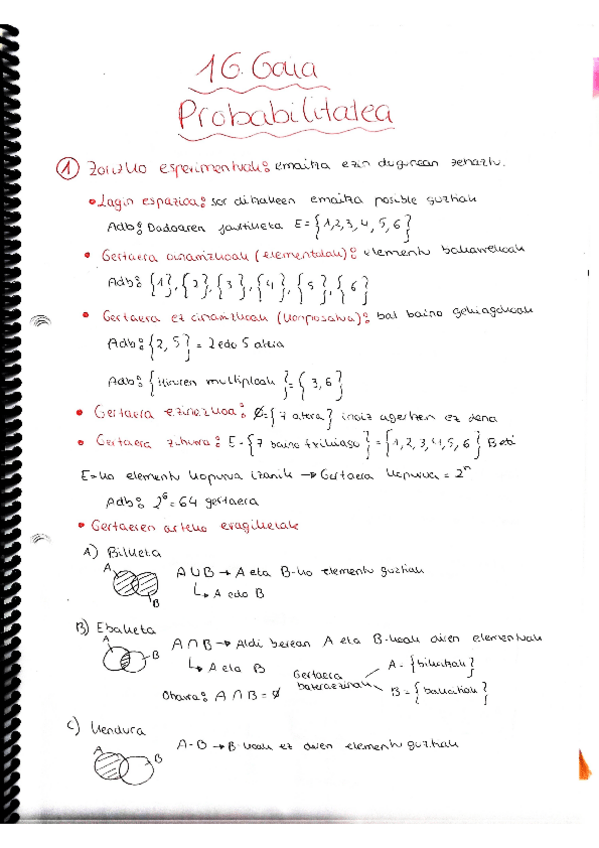 16. Gaia
Probabilitatea
1 Zorizko esperimentuak: emaitza ezin dugunean zehaztu.
• Lagin espazioa: sor ditakeen emaitza posible guztiak
Adb: Dadoaren jaurtiketa E={1,2,3,4,5,6}
• Gertaera oinarrizkoak (elementalak): elementu bakarrekoak
Adb: {1},{2},{3},{4},{5},{6}
• Gertaera ez oinarrizkoak (konposatua): bat baino gehiagokoak
Adb: {2,5} = 2 edo 5 ateia
Adb: {Hiruren multiploak}={3,6}
• Gertaera ezinezkoa: ∅={7 atera} inoiz agertzen ez dena
• Gertaera ziurra: E={7 baino txikiago}={1,2,3,4,5,6} Beti
E=ko elementu kopurua izanik → Gertaera kopurua = 2ⁿ
Adb: 2⁶=64 gertaera
• Gertaeren arteko eragiketak
A) Bilketa
A B A∪B → A eta B-ko elementu guztiak
↳ A edo B
B) Ebaketa
A B A∩B → Aldi berean A eta B-koak diren elementuak
↳ A eta B
Gertaera bateraezinak A={bikoitiak}
B={bakoitiak}
Oharra: A∩B=∅
C) Kendura
A B A-B → B koak ez diren elementu guztiak